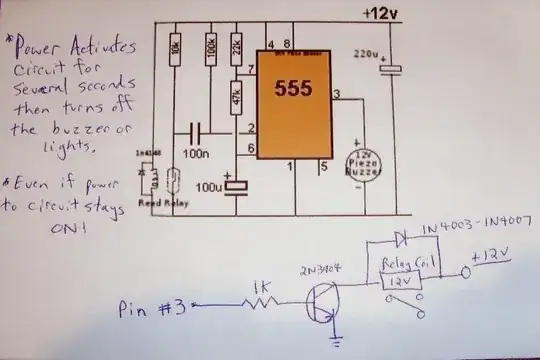 *Power Activates
Circuit for
Several seconds
then turns off
the buzzer or
lights.
*Even if power
to circuit stays
ON!
+12v
10k
100k
22k
4 8
220u +
7
555
47k
3
2
6
100n
1n4148
+
12V
Piezo
Buzzer
-
100u +
1
5
Reed Relay
1N4003-1N4007
Relay Coil
+12V
2N3904
12V
1K
Pin #3